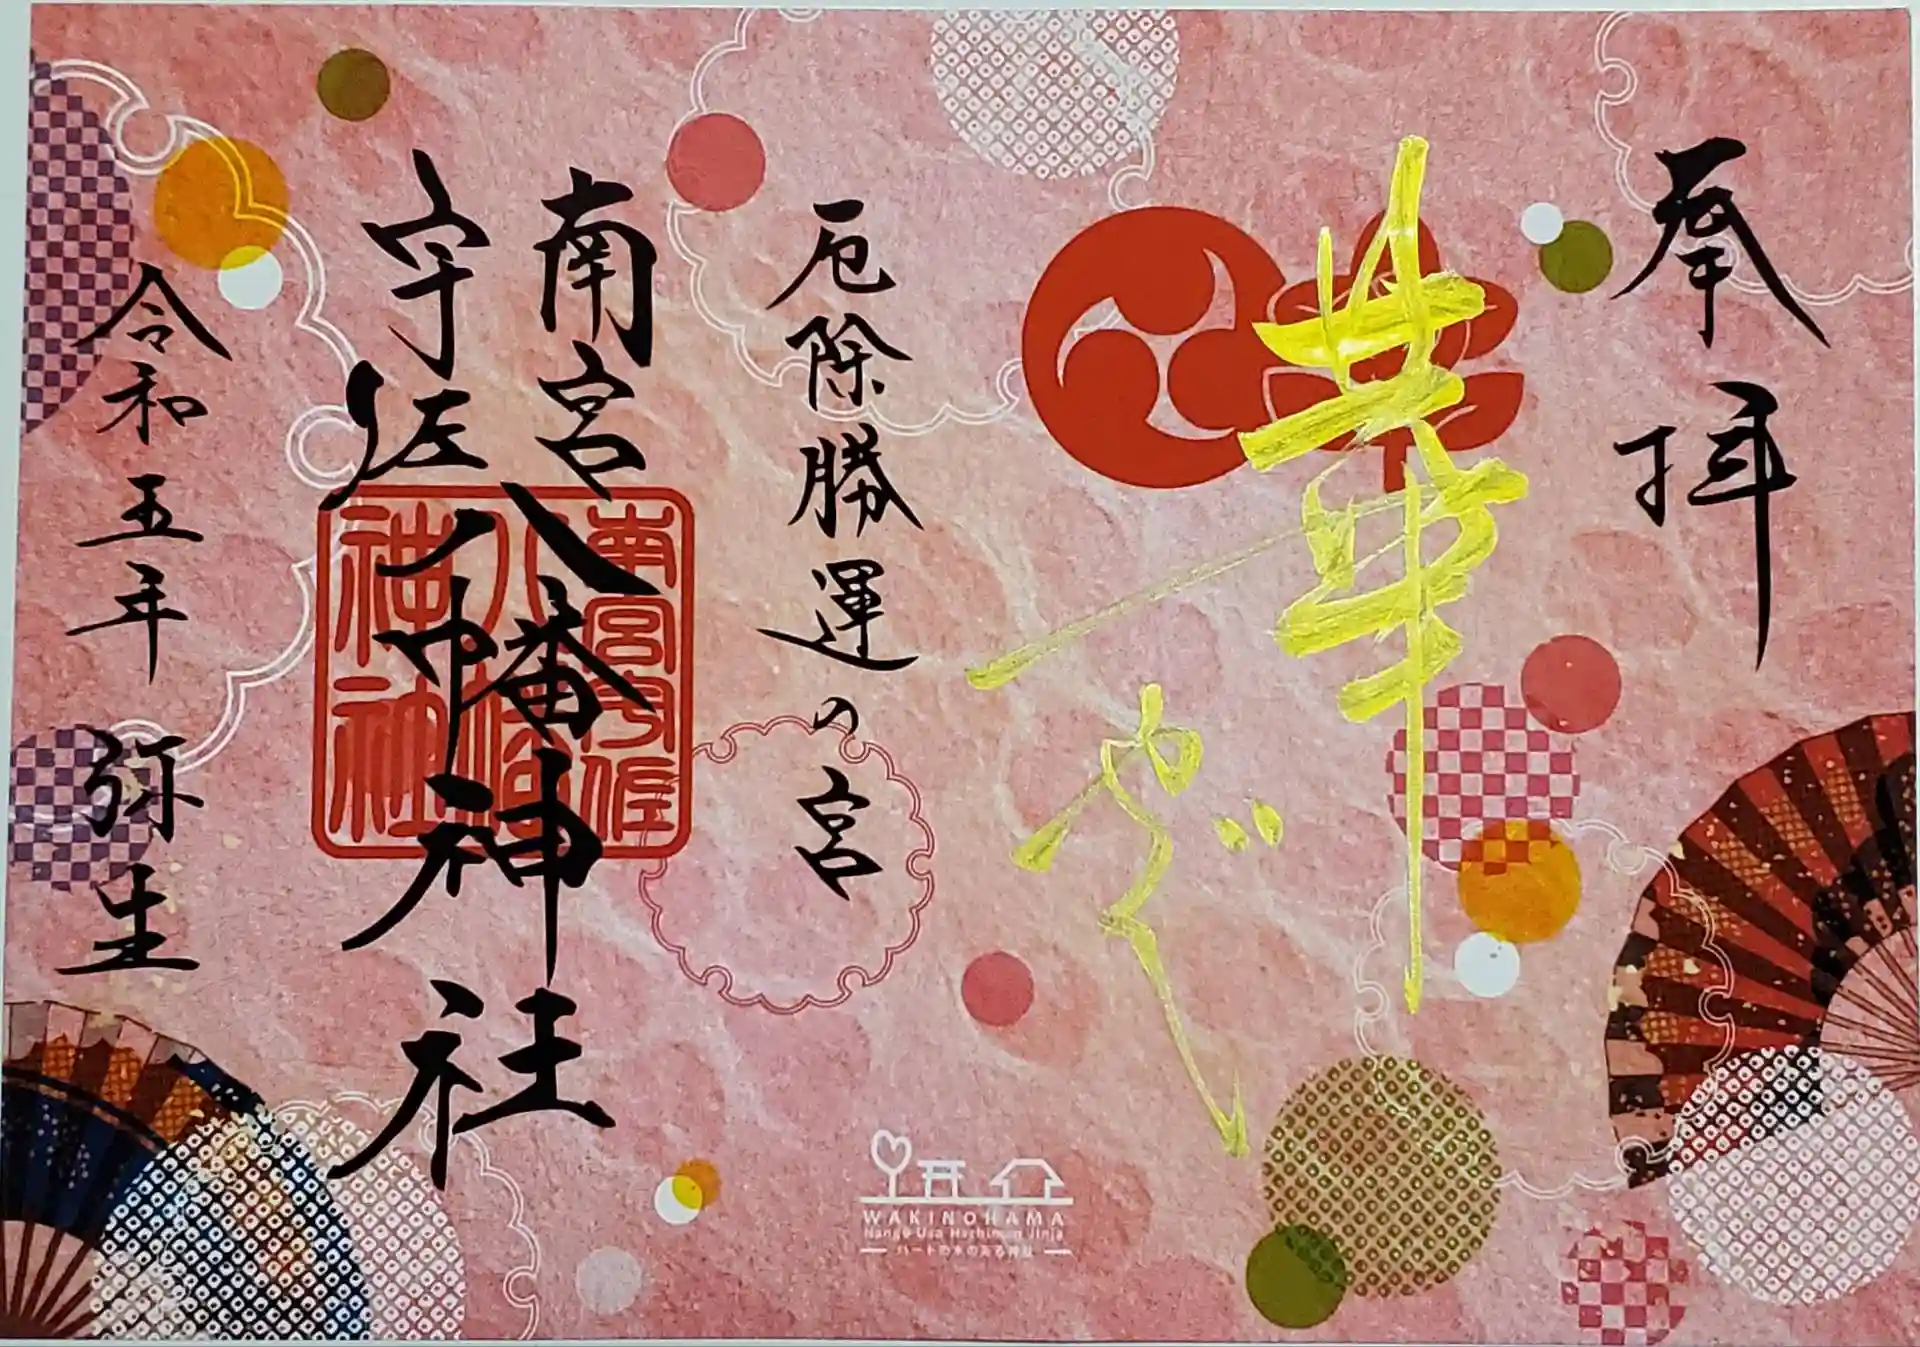 奉拝
華やぐ
厄除勝運の宮
南宮
宇佐
八幡神社
令和五年 弥生
南宮宇佐
八幡
神社
WAKINOHAMA
Nangu Usa Hachiman Jinja
ハートの木のある神社